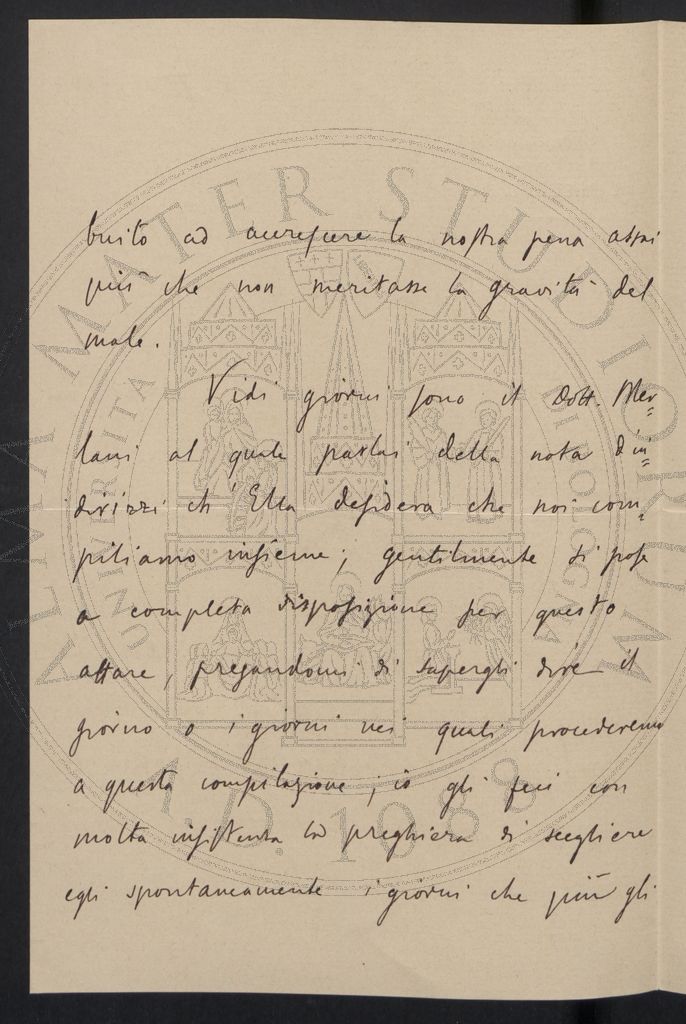 buito ad accrescere la nostra pena assai
più che non meritasse la gravità del
male.
Vidi giorni sono il Dott. Mer=
lani al quale parlai della nota d'in=
dirizzi ch'Ella desidera che noi com=
piliamo insieme; gentilmente si pose
a completa disposizione per questo
affare, pregandomi di sapergli dire il
giorno o i giorni nei quali procederemo
a questa compilazione; io gli feci con
molta insistenza la preghiera di scegliere
egli spontaneamente i giorni che più gli
ALMA MATER STUDIORUM
UNIVERSITÀ DI BOLOGNA
A.D. 1088